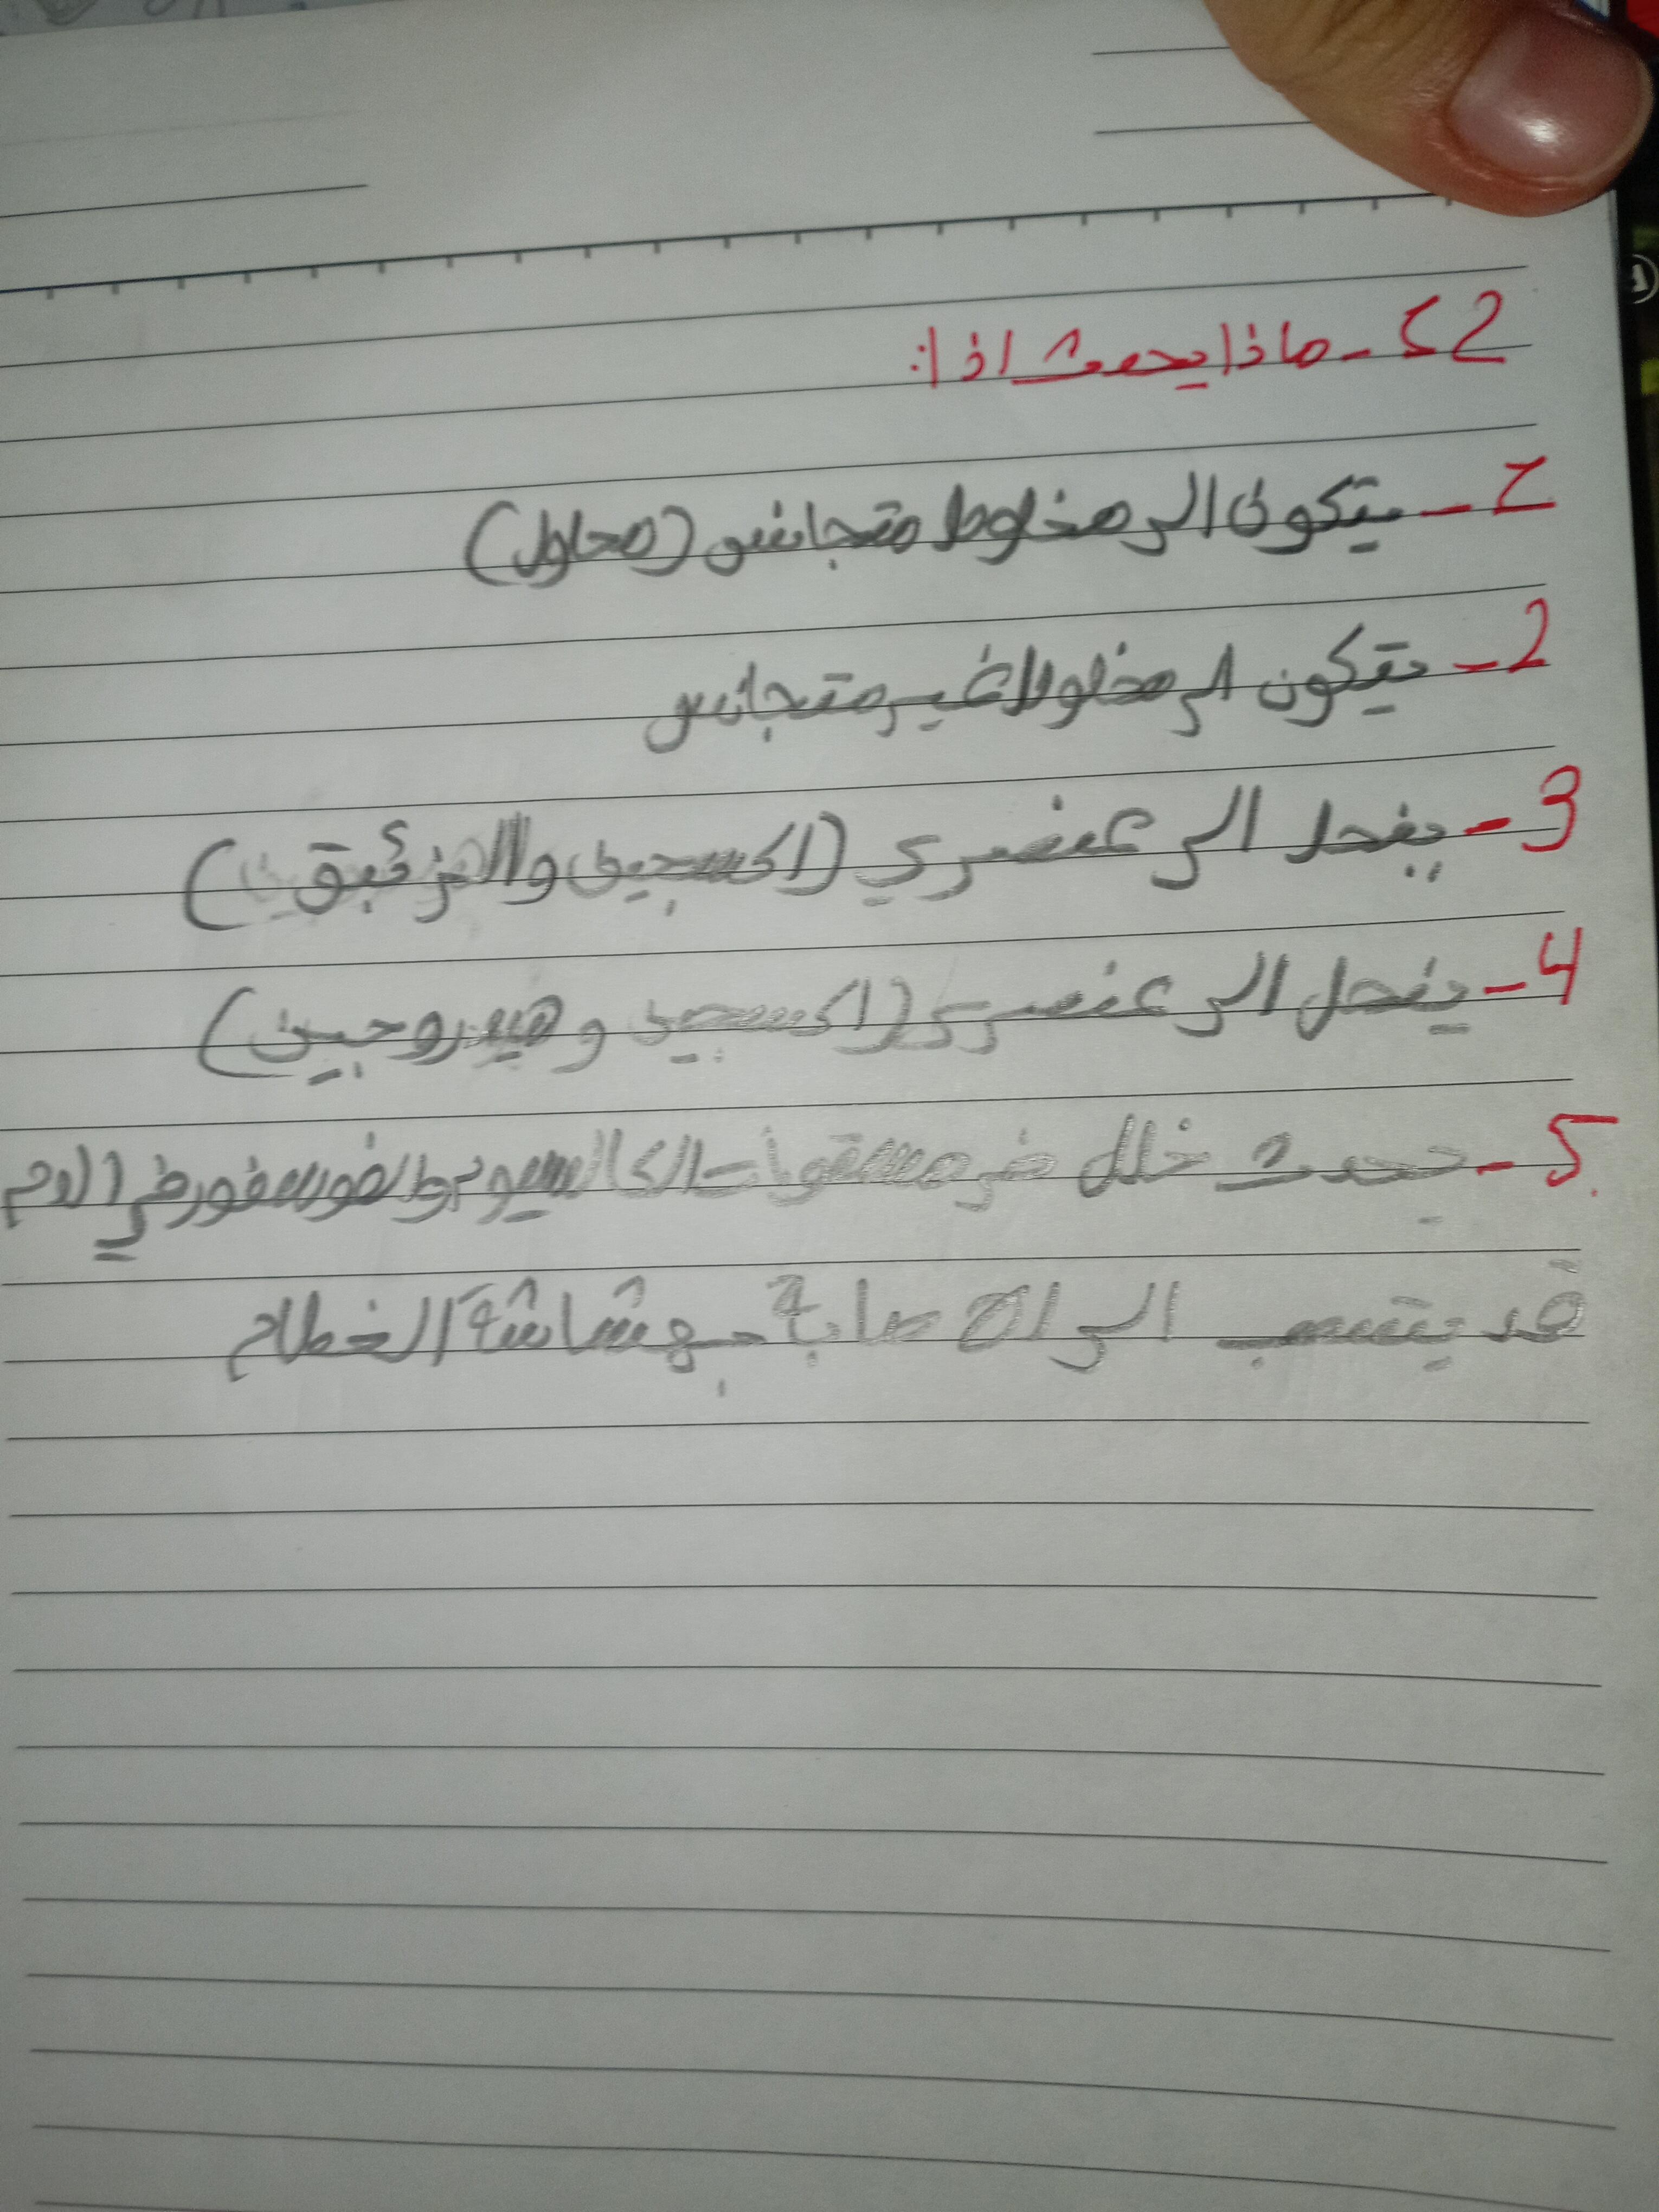 س2 - ماذا يحدث اذا:
1 - يتكون الى مخلوط متجانس (محلول)
2 - يتكون الى مخلوط غير متجانس
3 - ينحل الى عنصري (اكسجين والزئبق)
4 - ينحل الى عنصري (اكسجين وهيدروجين)
5 - يحدث خلل في مستويات الكالسيوم والفوسفور في الدم
قد يتسبب الى الاصابة بهشاشة العظام